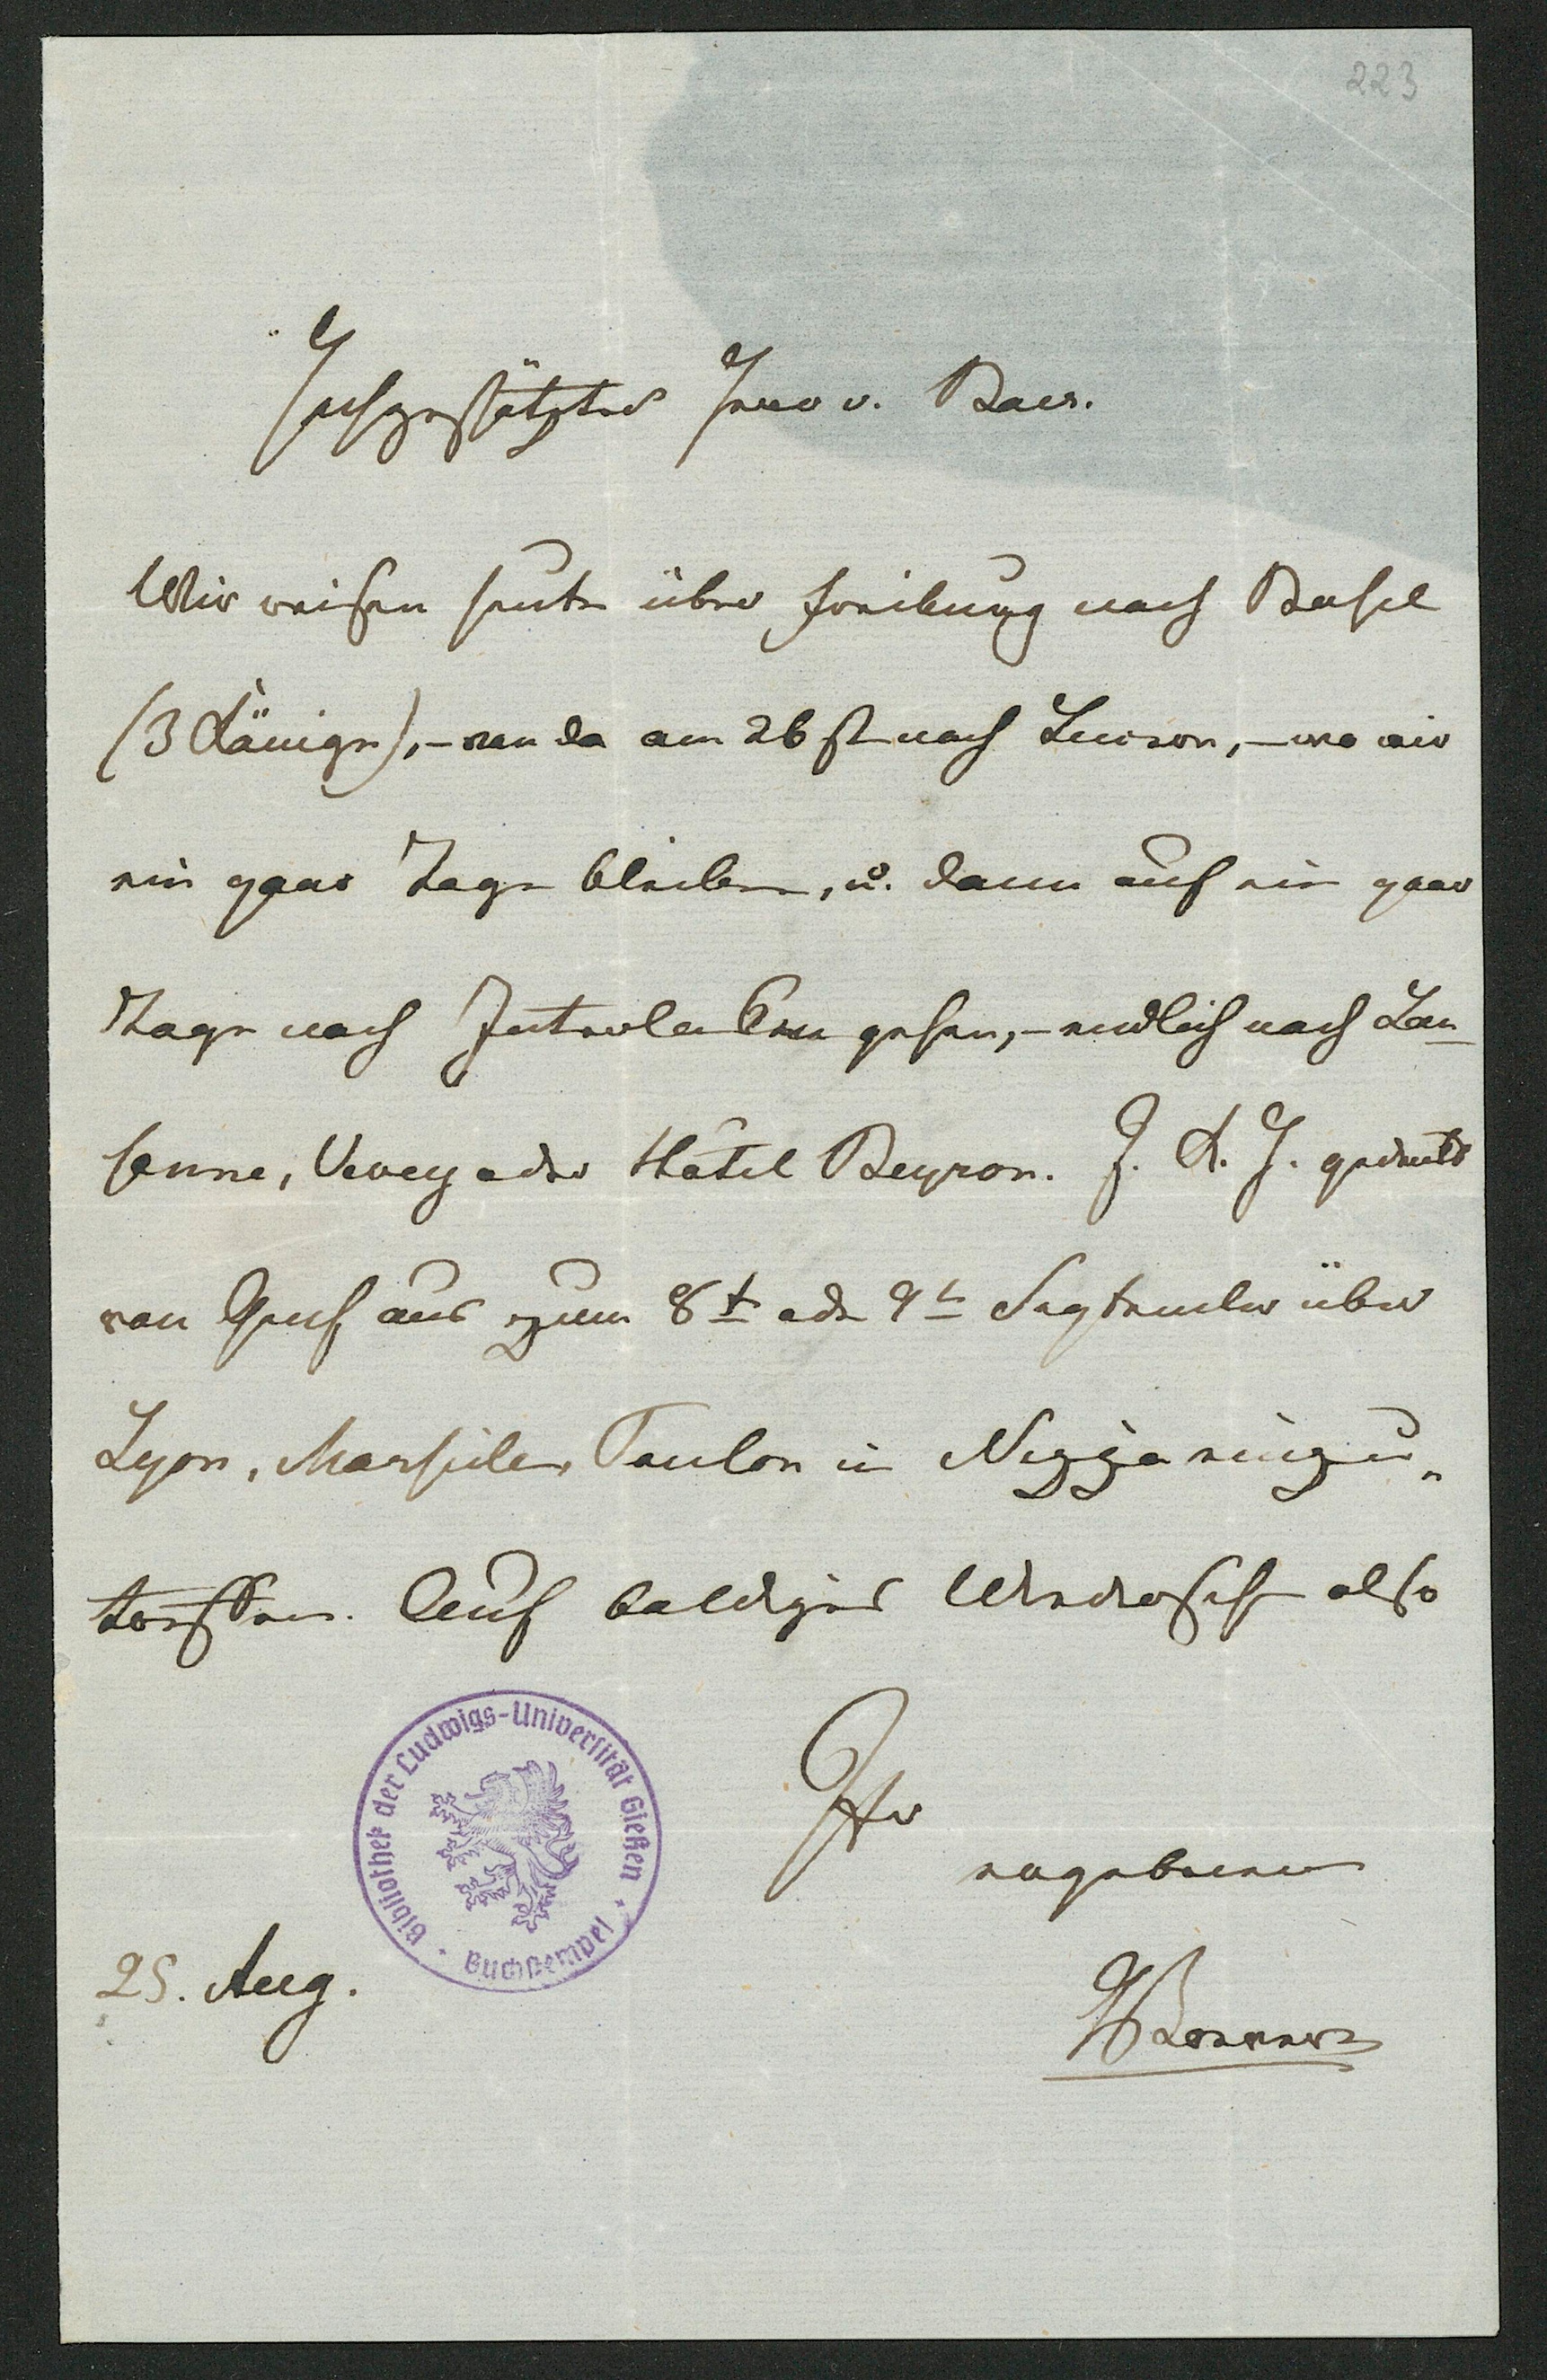 223
Hochgeschätzter Herr v. Baer.
Wir reisen heute über Freiburg nach Basel
(3 Könige),– von da am 26st nach Luzern,– wo wir
ein paar Tage bleiben, u. dann auf ein paar
Tage nach Interlaken gehen,– endlich nach Lau-
sanne, Vevey oder Hôtel Beyron. J. K. H. gedenkt
von Genf aus zum 8t oder 9t September über
Lyon, Marseile, Toulon in Nizza einzu-
treffen. Auf baldiges Wiedersehen also
Ihr
ergebener
25. Aug.
Bibliothek der Ludwigs-Universität Gießen · Buchstempel ·